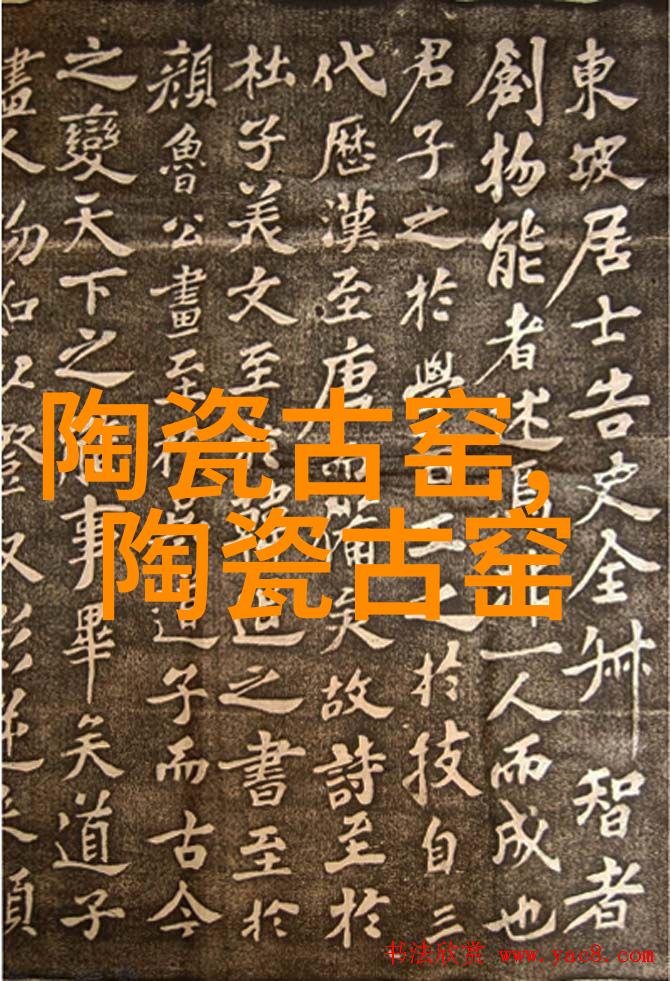 東坡居士告史全叔智者
創物能者述焉非一人而成也
君子之於學百工之於技自三
代歷漢至唐而備矣故詩至於
杜子美文至於韓退之書至於
顏魯公畫至於吳道子而古今
之變天下之能事畢矣道子
陶瓷古窑,
陶瓷古窑
书法欣赏 www.yac8.com